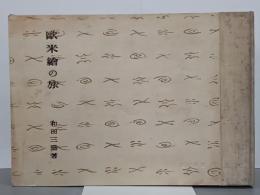 歐米繪の旅
和田三造著